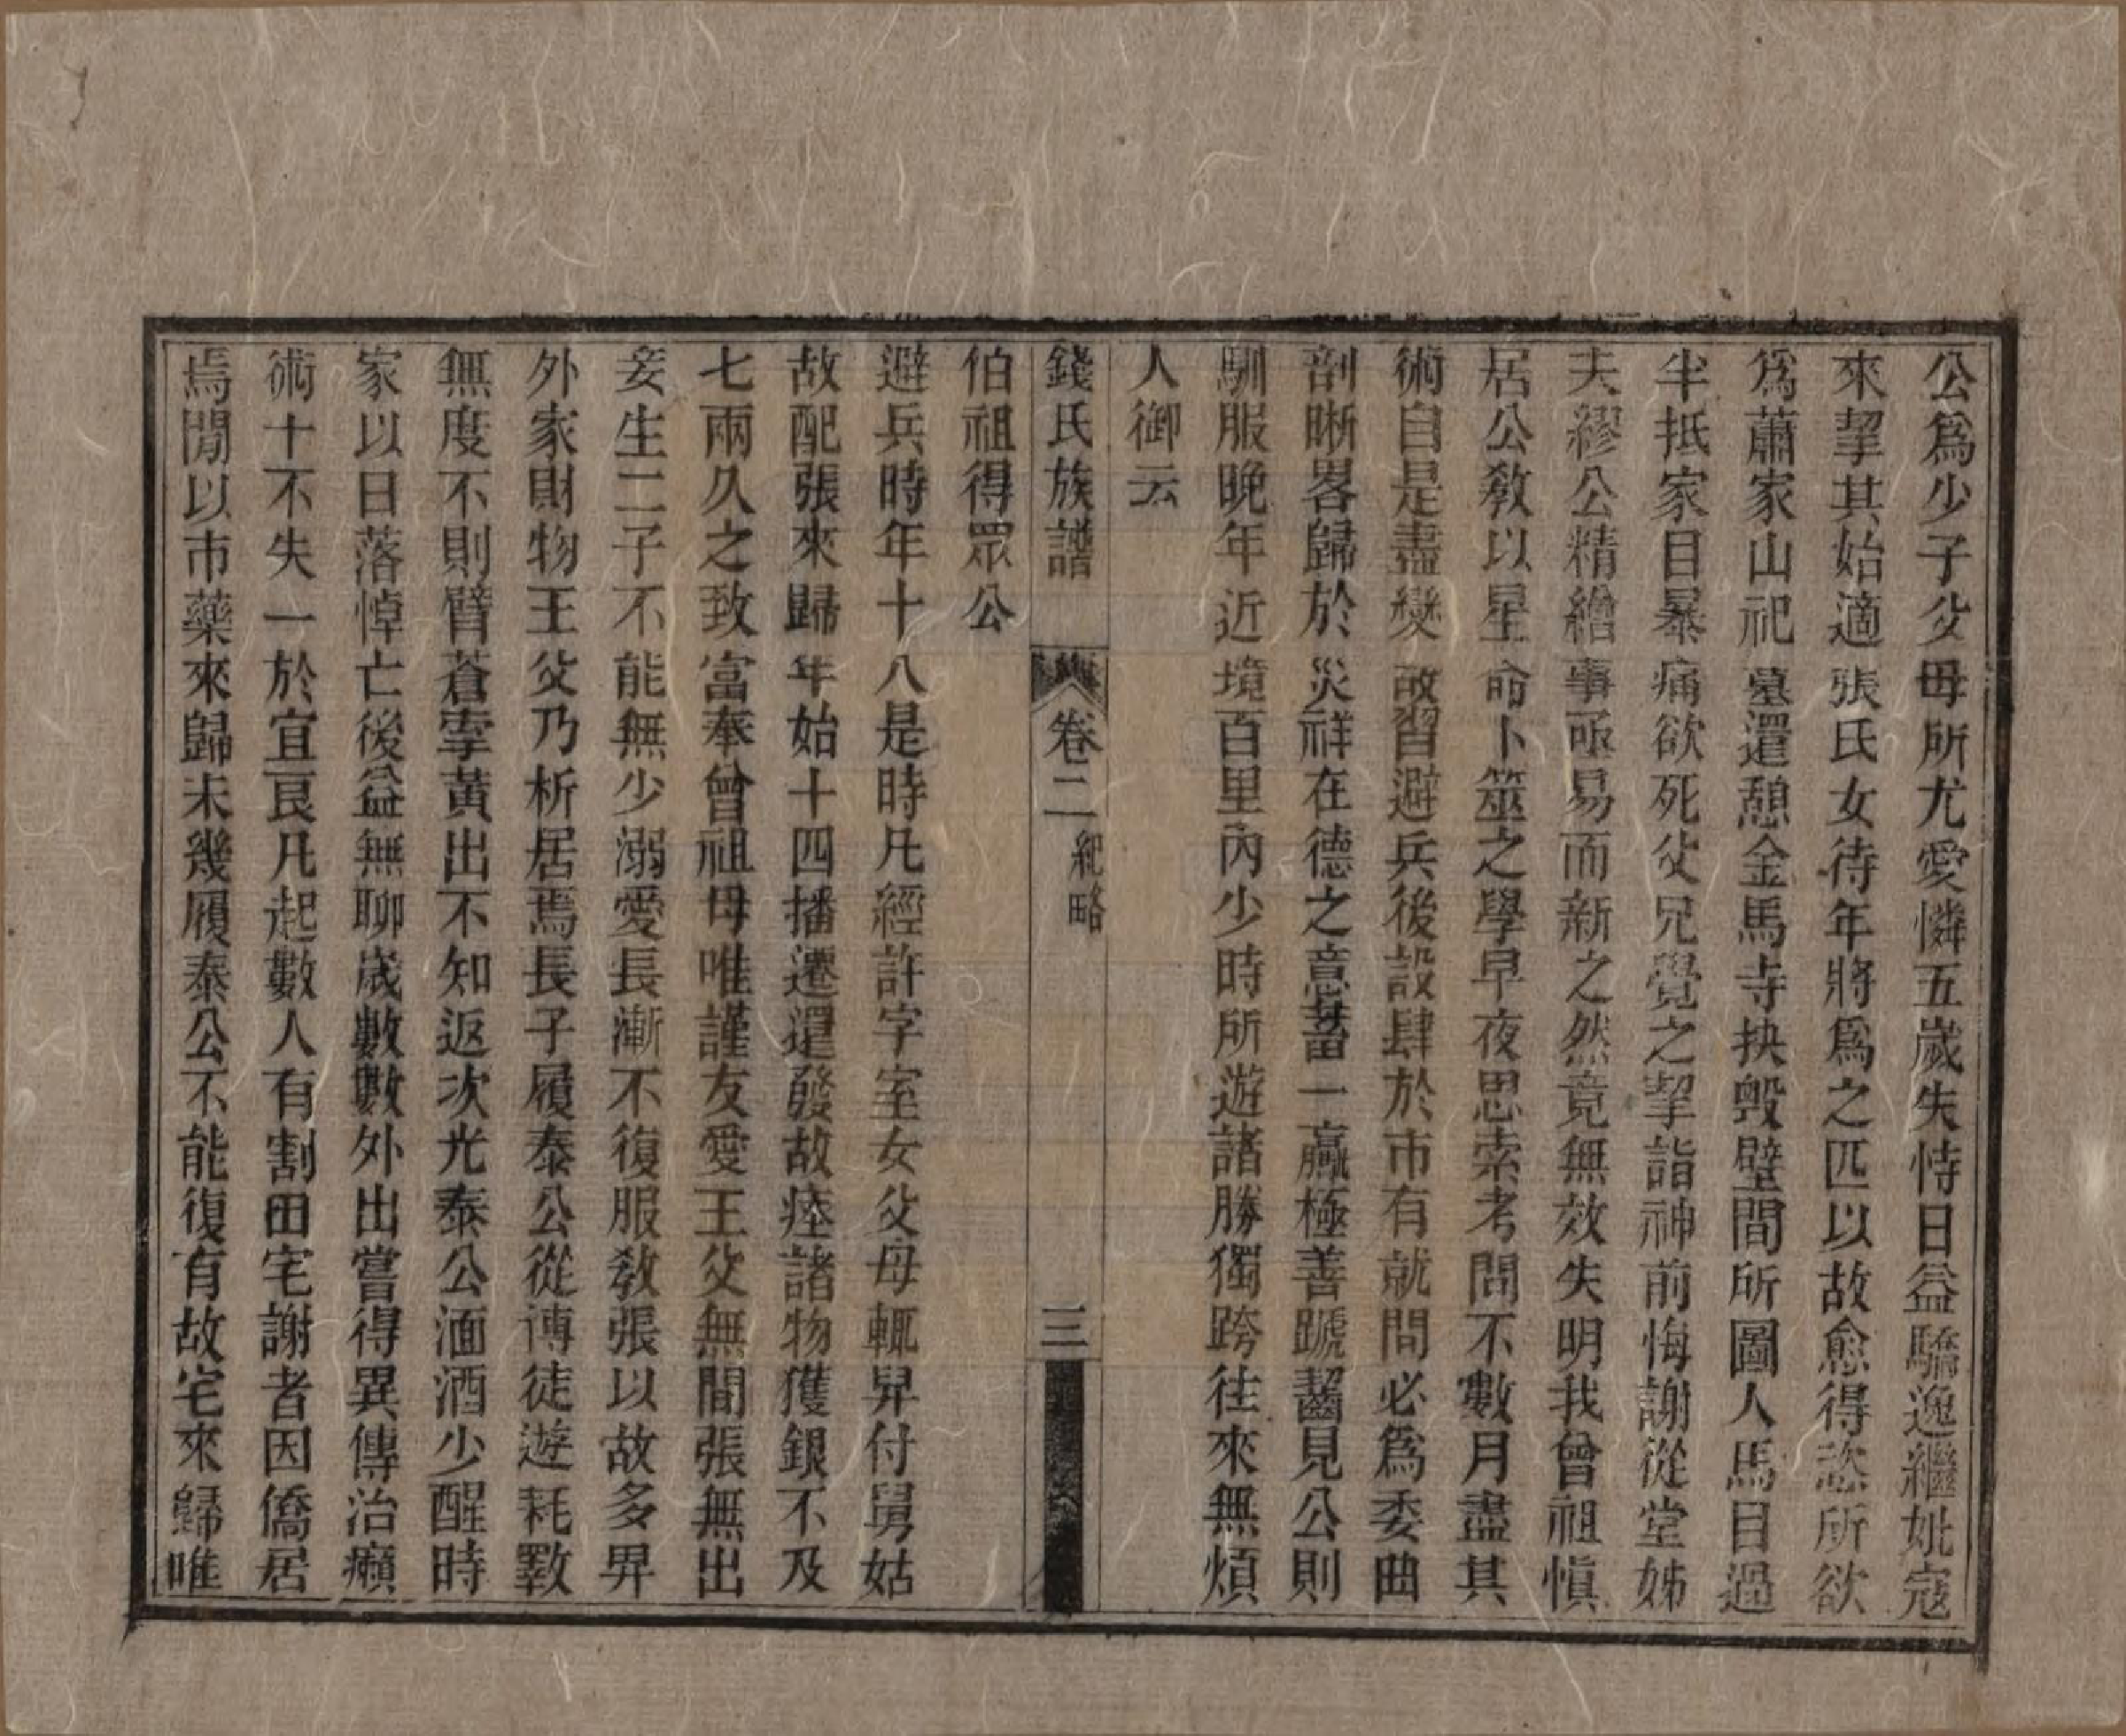 公爲少子父母所尤愛憐五歲失恃日益驕逸繼妣寇
來挈其始適張氏女待年將爲之匹以故愈得恣所欲
爲蕭家山祀墓還憩金馬寺抉毀壁間所圖人馬目過
半抵家目暴痛欲死父兄覺之挈詣神前悔謝從堂姊
夫繆公精繪事亟易而新之然竟無效失明我曾祖愼
居公敎以星命卜筮之學早夜思索考問不數月盡其
術自是盡變故習避兵後設肆於市有就問必爲委曲
剖晰畧歸於災祥在德之意蓄一驘極善蹏齧見公則
馴服晚年近境百里內少時所遊諸勝獨跨往來無煩
人御云
錢氏族譜 卷二 紀略 三
伯祖得眾公
避兵時年十八是時凡經許字室女父母輒舁付舅姑
故配張來歸年始十四播遷還發故瘞諸物獲銀不及
七兩久之致富奉曾祖母唯謹友愛王父無間張無出
妾生二子不能無少溺愛長漸不復服敎張以故多畀
外家財物王父乃析居焉長子履泰公從博徒遊耗斁
無度不則臂蒼牽黃出不知返次光泰公湎酒少醒時
家以日落悼亡後益無聊歲數數外出嘗得異傳治癩
術十不失一於宜良凡起數人有割田宅謝者因僑居
焉閒以市藥來歸未幾履泰公不能復有故宅來歸唯